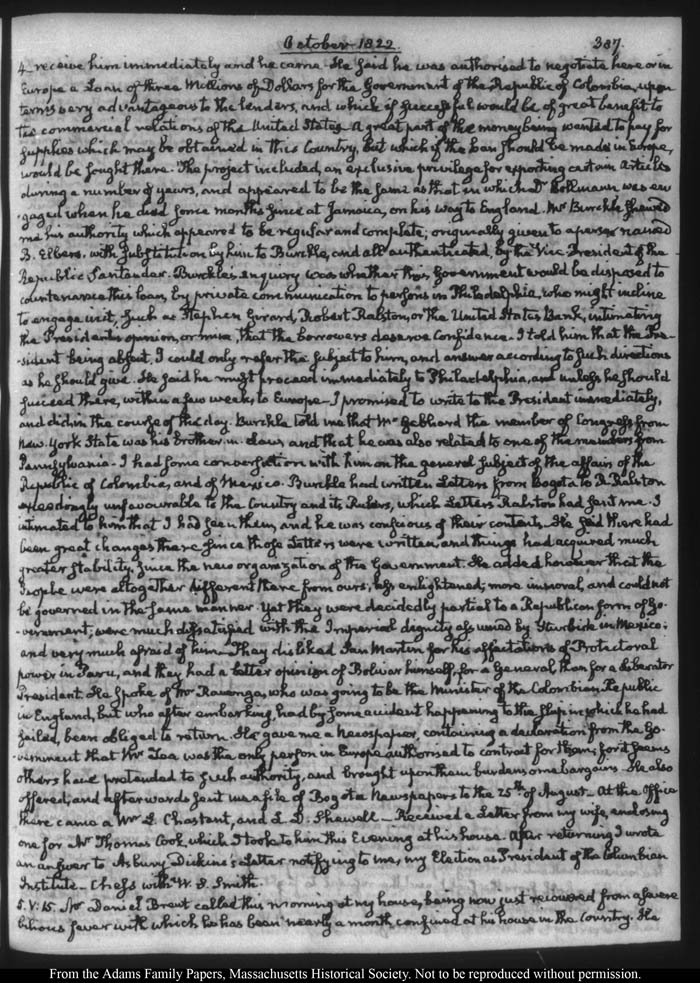 October 1822.
387.
4 receive him immediately and he came. He said he was authorised to negotiate here or in
Europe a Loan of three Millions of Dollars for the Government of the Republic of Colombia, upon
terms very advantageous to the lenders, and which if successful would be of great benefit to
the commercial relations of the United States. A great part of the money being wanted to pay for
supplies which may be obtained in this Country, but which if the loan should be made in Europe,
would be sought there. The project included, an exclusive privilege for exporting certain Articles
during a number of years, and appeared to be the same as that in which Dr Bollmann was en-
gaged when he died some months since at Jamaica, on his way to England. Mr Burckle shewed
me his authority which appeared to be regular and complete; originally given to a person named
B. Elbers, with substitution by him to Burckle, and all authenticated, by the Vice President of the
Republic Santander. Burckle's enquiry was whether this Government would be disposed to
countenance this loan, by private communication to persons in Philadelphia, who might incline
to engage in it, such as Stephen Girard, Robert Ralston, or the United States Bank, intimating
the President's opinion, or mine, that the borrowers deserve confidence. I told him that the Pre-
sident being absent, I could only refer the subject to him, and answer according to such directions
as he should give. He said he must proceed immediately to Philadelphia, and unless he should
succeed there, within a few weeks, to Europe— I promised to write to the President immediately,
and did in the course of the day. Burckle told me that Mr Gebhard the member of Congress from
New-York State was his brother-in-law, and that he was also related to one of the members from
Pennsylvania. I had some conversation with him on the general subject of the affairs of the
Republic of Colombia, and of Mexico. Burckle had written Letters from Bogota to R. Ralston
exceedingly unfavourable to the Country and its Rulers, which Letters Ralston had sent me. I
intimated to him that I had seen them, and he was conscious of their contents. He said there had
been great changes there since those Letters were written, and things had acquired much
greater stability, since the new organization of the Government. He added however that the
People were altogether different there from ours; less enlightened; more immoral, and could not
be governed in the same manner. Yet they were decidedly partial to a Republican form of Go-
vernment; were much dissatisfied with the Imperial dignity assumed by Iturbide in Mexico;
and very much afraid of him. They disliked San Martin for his affectations of Protectoral
power in Peru, and they had a better opinion of Bolivar himself, for a General, than for a deliberator
President. He spoke of Mr Ravenga, who was going to be the Minister of the Colombian Republic
in England, but who after embarking, had by some accident happening to the ship in which he had
sailed, been obliged to return. He gave me a Newspaper, containing a declaration from the Go-
vernment that Mr Zea was the only person in Europe authorised to contract for them; for it seems
others have pretended to such authority, and brought upon them burdensome bargains. He also
offered, and afterwards sent me a file of Bogota Newspapers to the 25th of August— At the Office
there came a Mr L. Chastant, and L. D. Shewell— Received a Letter from my wife, enclosing
one for Mr Thomas Cook, which I took to him this Evening at his house. After returning I wrote
an answer to Asbury Dickins's Letter notifying to me, my Election as President of the Columbian
Institute— Chess with W. S. Smith.
5. V:15. Mr Daniel Brent called this morning at my house, being now just recovered from a severe
bilious fever with which he has been nearly a month confined at his house in the Country. He
From the Adams Family Papers, Massachusetts Historical Society. Not to be reproduced without permission.